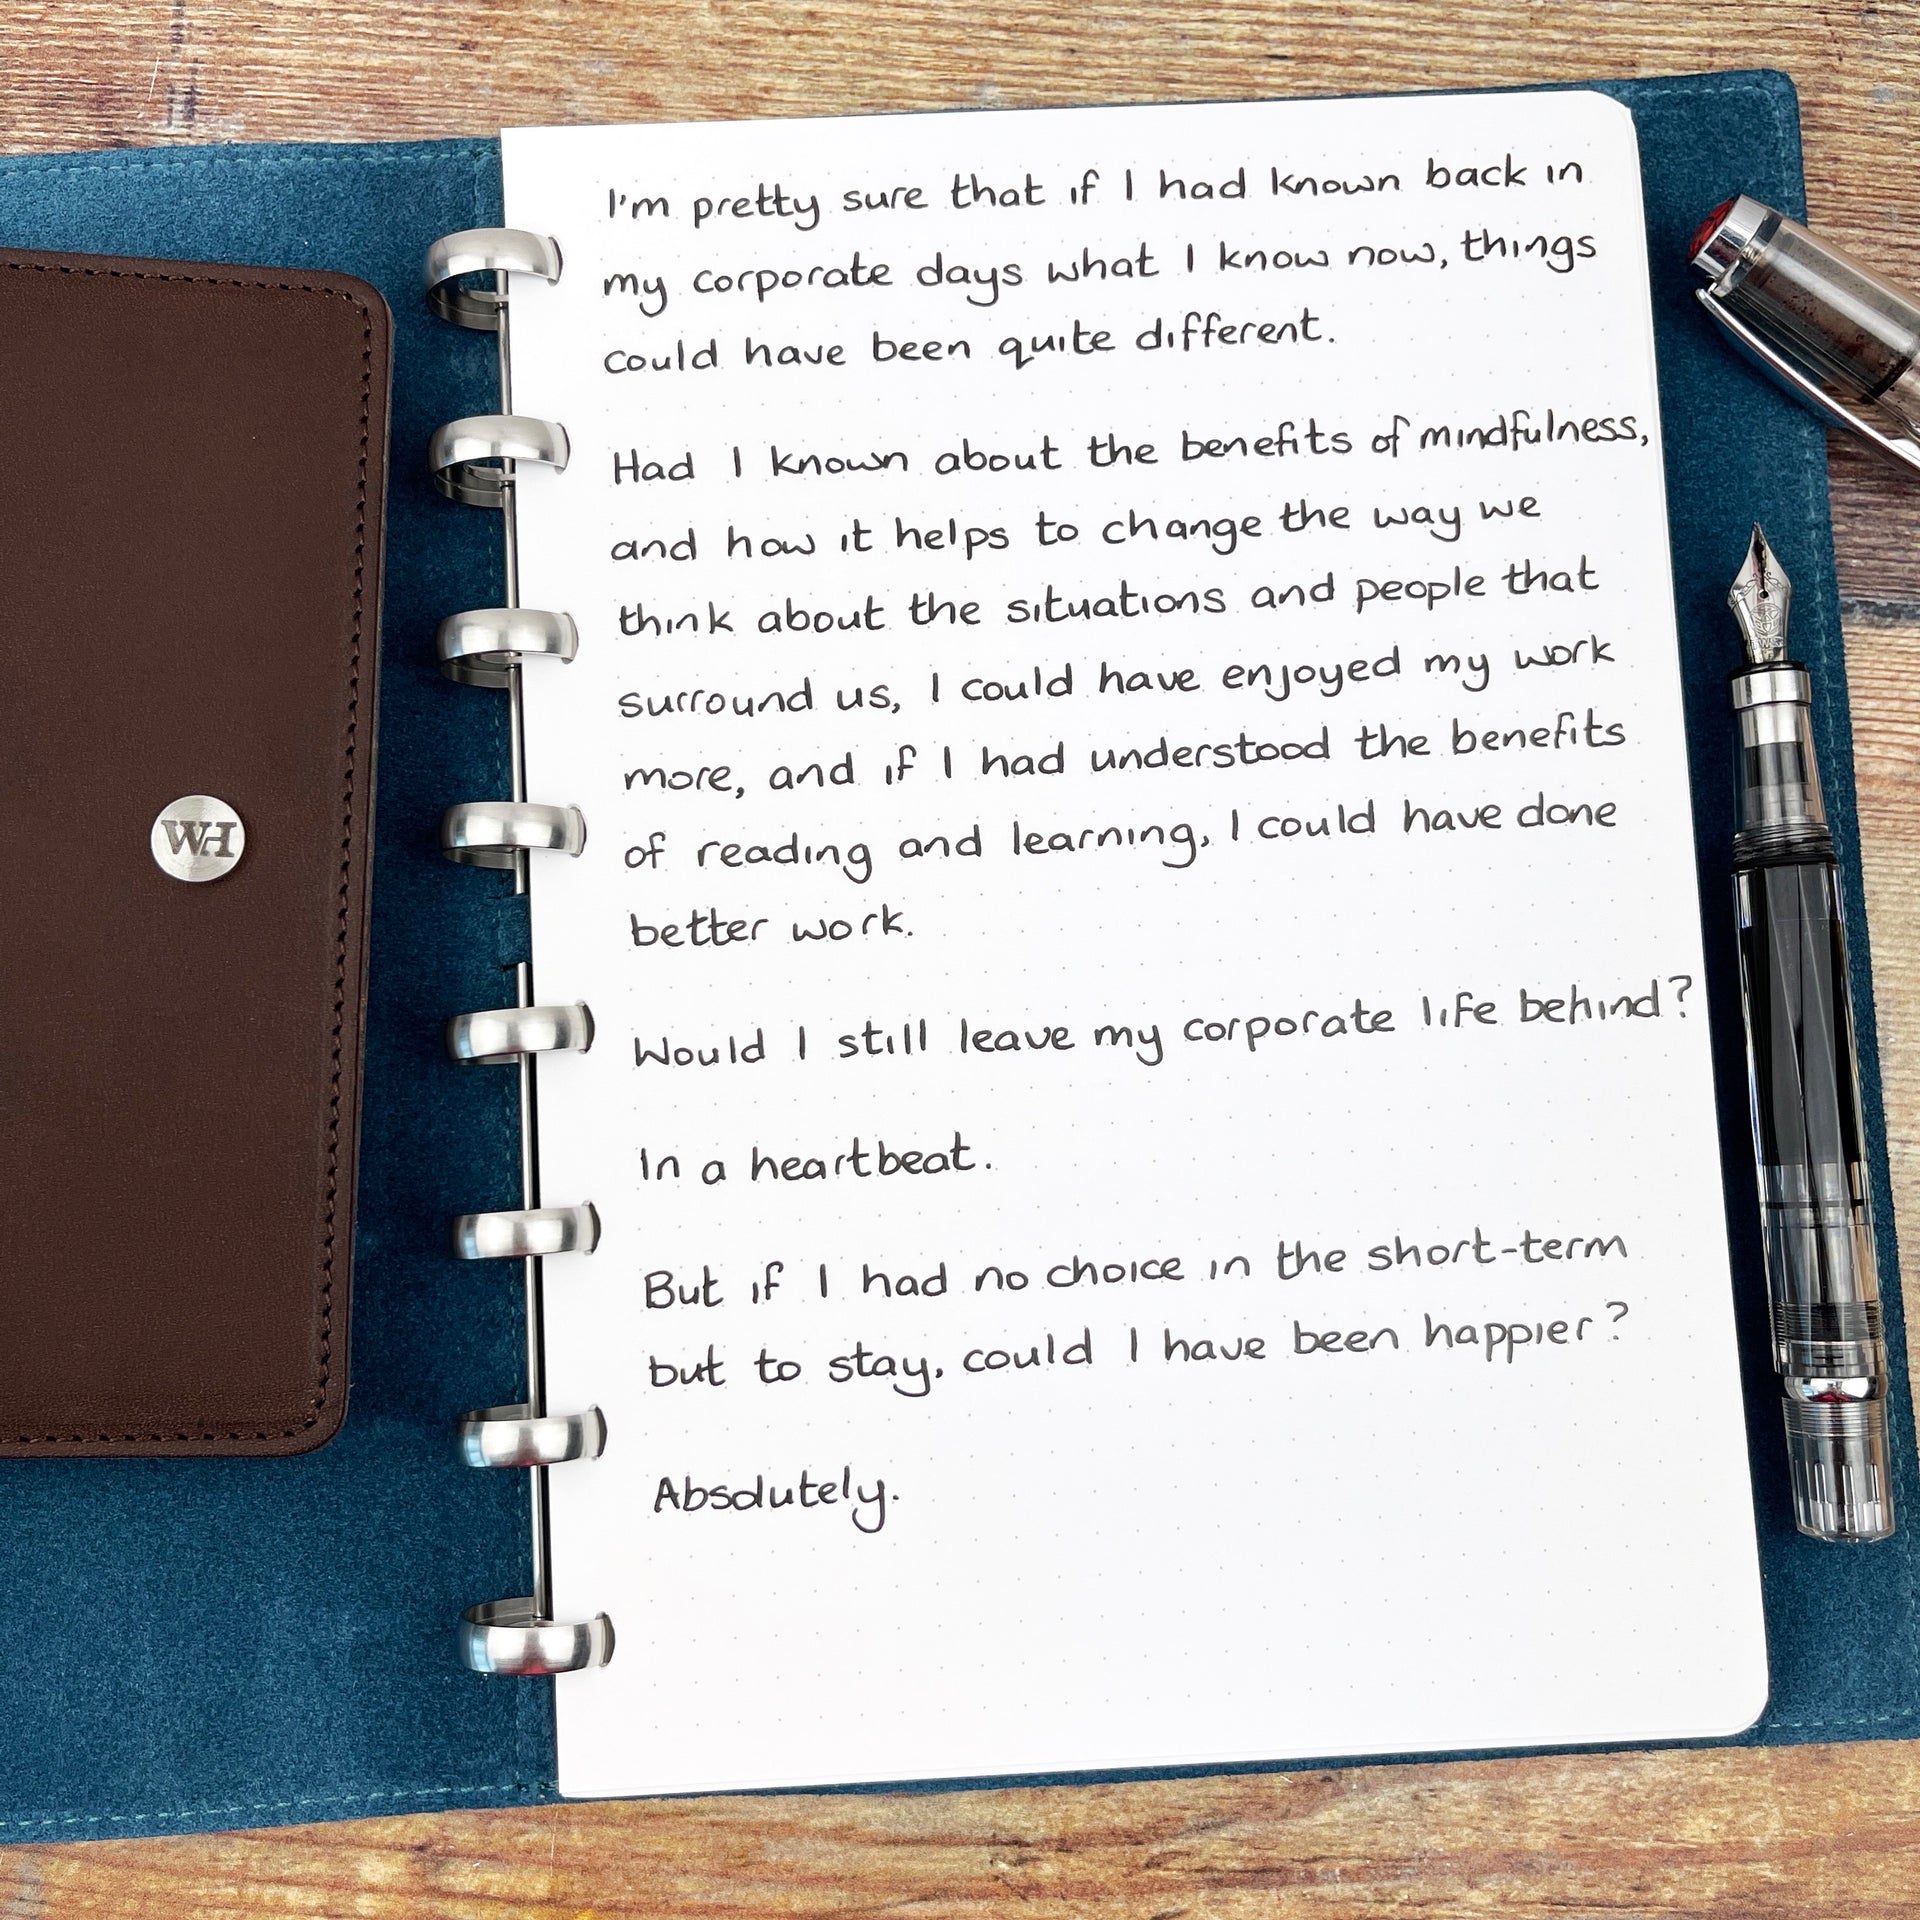 I'm pretty sure that if I had known back in
my corporate days what I know now, things
could have been quite different.
Had I known about the benefits of mindfulness,
and how it helps to change the way we
think about the situations and people that
surround us, I could have enjoyed my work
more, and if I had understood the benefits
of reading and learning, I could have done
better work.
Would I still leave my corporate life behind?
In a heartbeat.
But if I had no choice in the short-term
but to stay, could I have been happier?
Absolutely.
WH